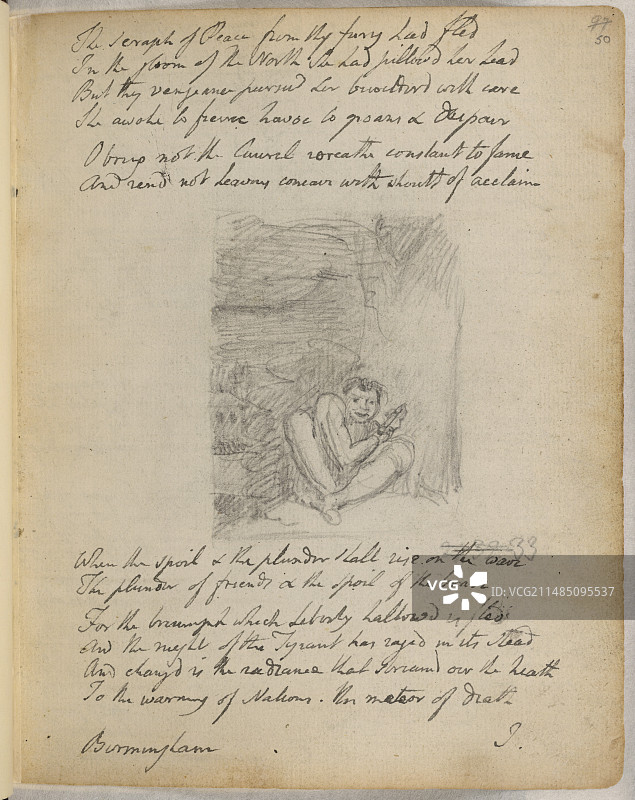 97
50
The Seraph of Peace from thy fury had fled
In the gloom of the North She had pillowd her head
But thy vengeance pursud her bewilderd with care
She awoke to fierce havoc to groans & despair
O bring not the Laurel wreathe constant to fame
And rend not heavens concave with shouts of acclaim
33
When the spoil & the plunder shall rise on the wave
The plunder of friends & the spoil of the
For the triumph which Liberty hallowd is fled
And the might of the Tyrant has raged in its stead
And changd is the radiance that streamd oer the heath
To the warning of Nations. the meteor of death
Birmingham J.
VCG
VCG211485095537